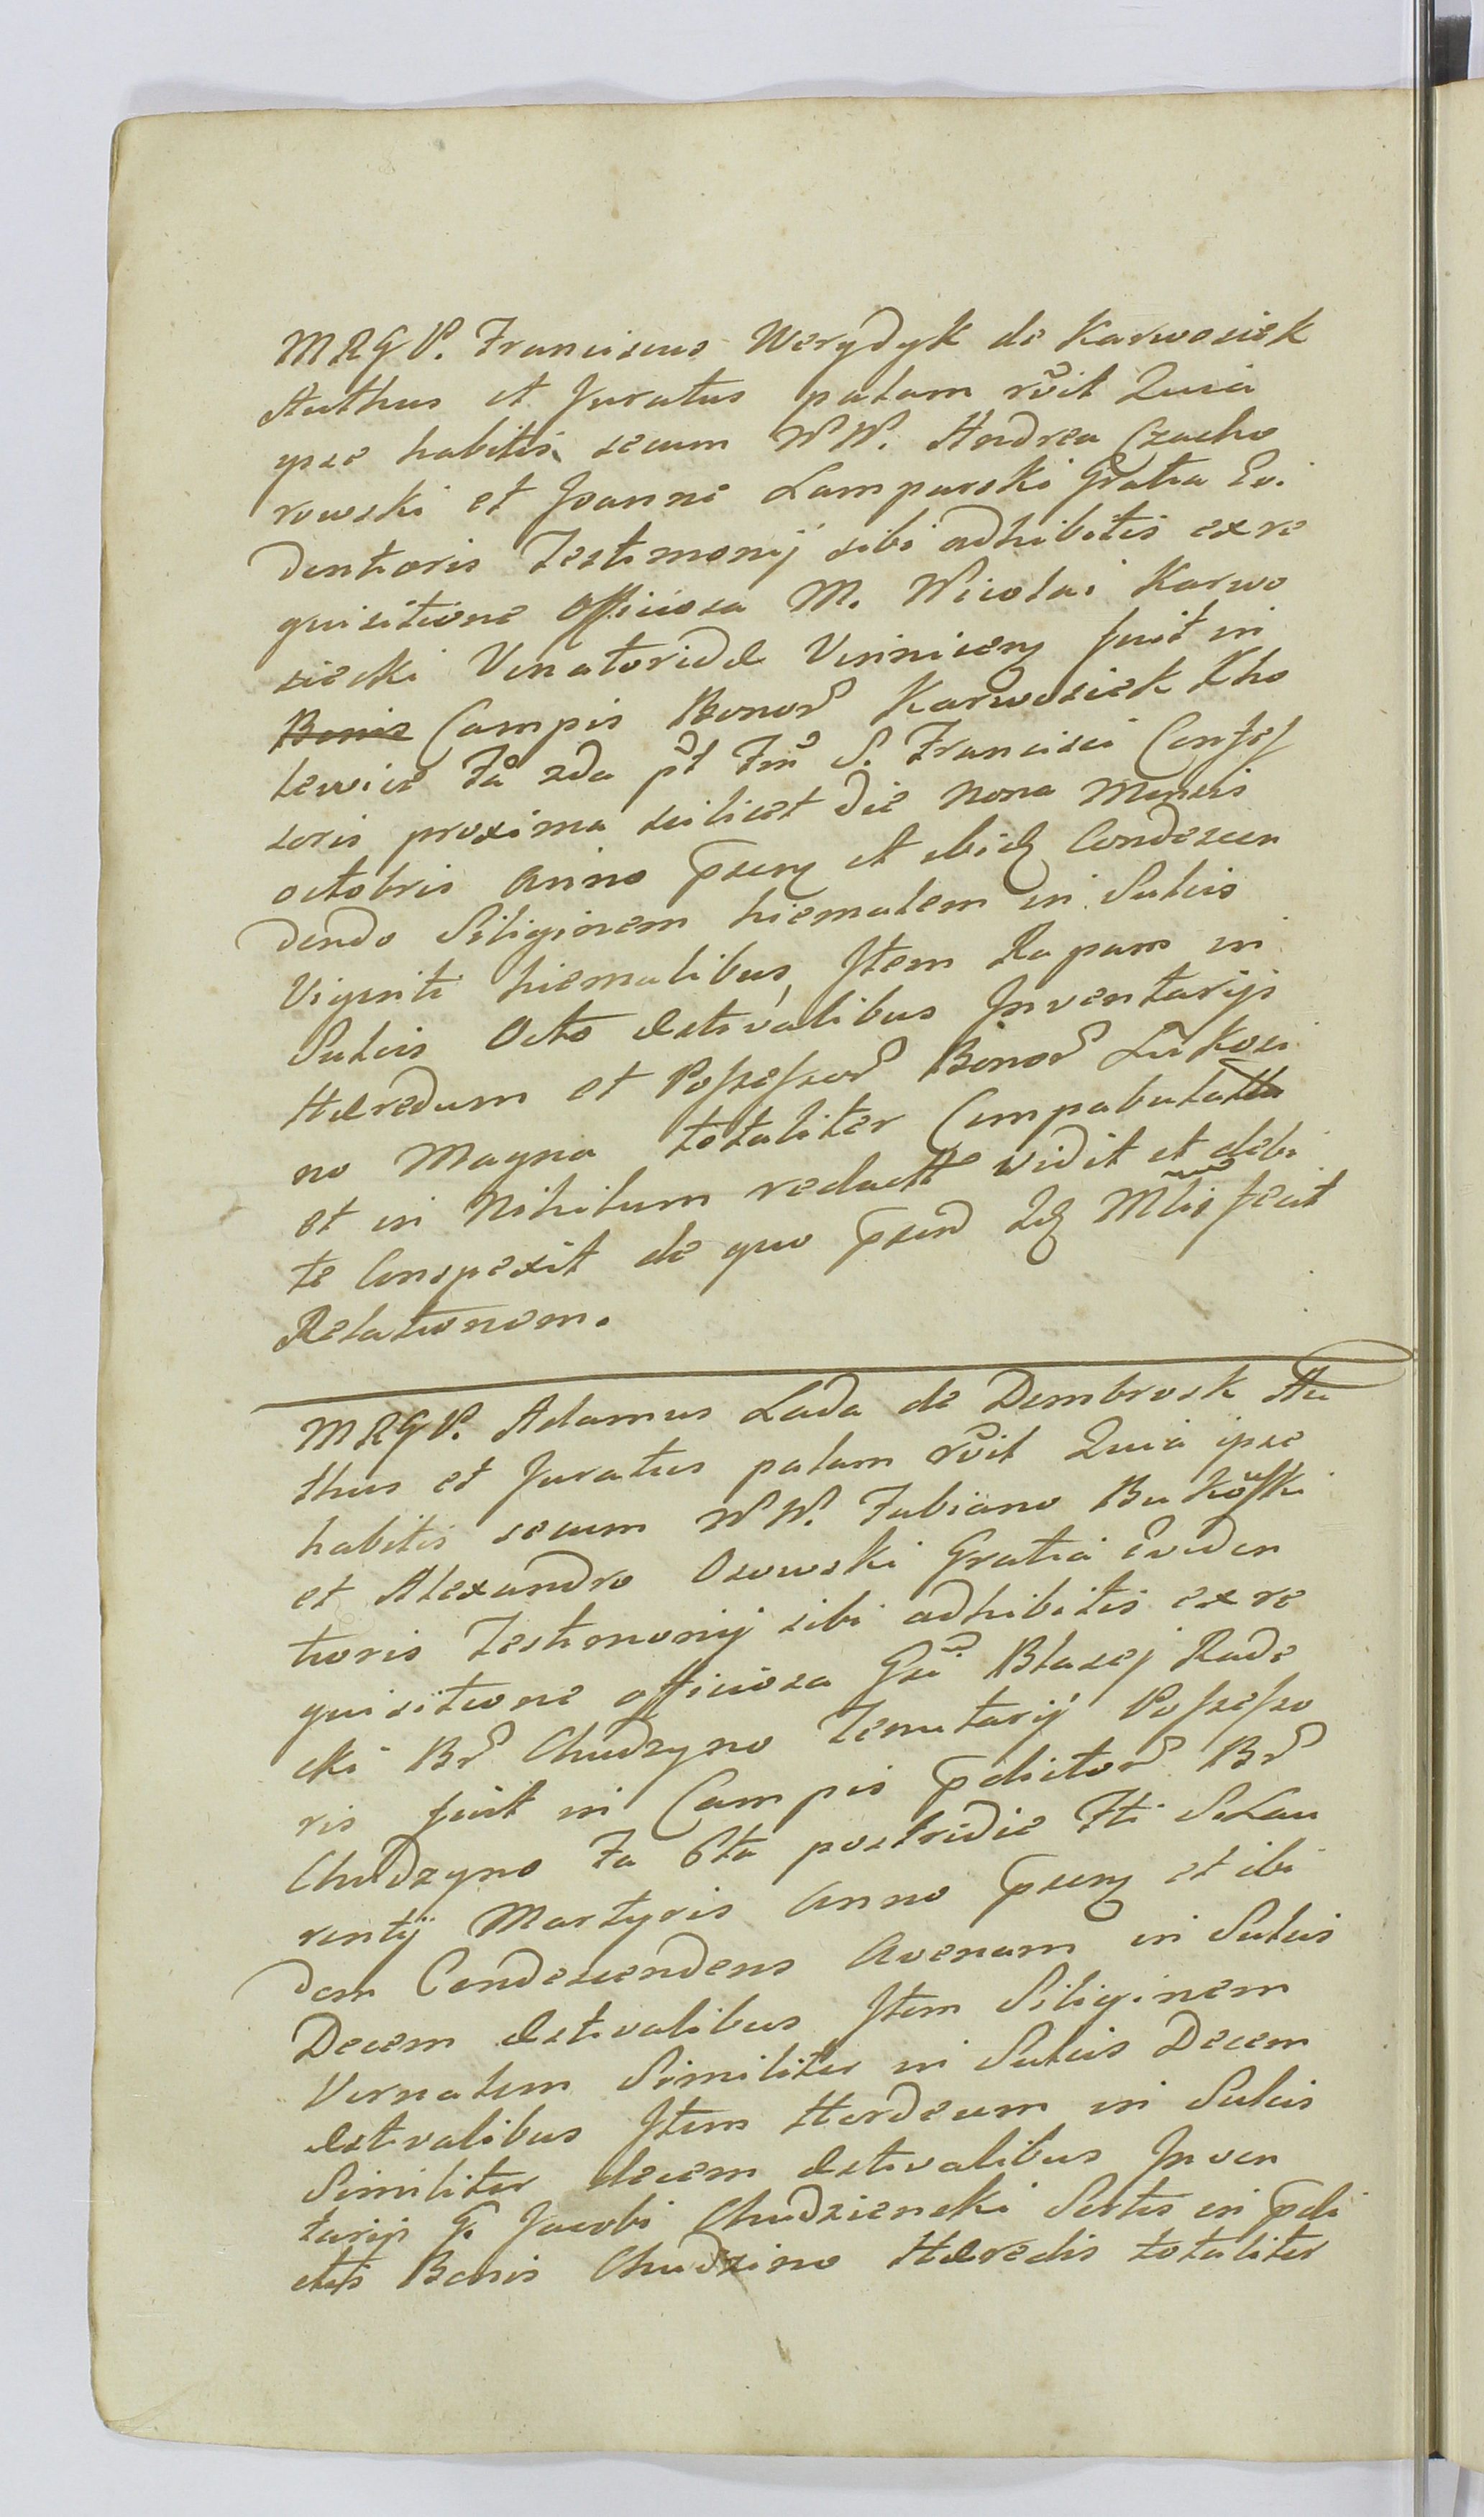 MRGV. Franciscus Werydyk de Karwosiek
Authus et Juratus palam rõit Quia
ipse habitis secum WW. Andrea Czacho
rowski et Joanne Lamparski Gratia Evi
dentioris Testimonij sibi adhibitis ex re
quisitione officiosa M. Nicolai Karwo
siecki Venatoridæ Vinnicen fuit in
Bonis Campis Bonor Karwosiek Cho
lewice fã 2da pt Fm S. Francisci Confes
soris proxima scilicet die nona Mensis
octobris Anno psen et ibid Condescen
dendo Siliginem hiemalem in Sulcis
Viginti hiemalibus, Item Rapam in
Sulcis Octo æstivalibus Inventarijs
Hæredum et Possessor Bonor Lukosi
no Magna totaliter Compabulatam
et in Nihilum redactt vidit et debi
te Conspexit de quo psen Id Mlis fecit
Relationem.
MRGV. Adamus Lada de Dembrosk Au
thus et Juratus palam rõit Quia ipse
habitis secum WW. Fabiano Bukoski
et Alexandro Osowski Gratia Eviden
tioris Testimonij sibi adhibitis ex re
quisitione officiosa Gsi Blasej Rade
cki Br Chudzyno Tenutarij Possesso
ris fuit in Campis pdictor Br
Chudzyno fa 6ta postridie fti S. Lau
rentij Martyris Anno psen et ibi
dem Condescendens Avenam in Sulcis
Decem Æstivalibus Item Siliginem
Vernalem Similiter in Sulcis Decem
æstivalibus Item Hordeum in Sulcis
Similiter decem æstivalibus Inven
tarijs G. Jacobi Chudzienski Sortis in pdi
ctis Bonis Chudzino Hæredis totaliter